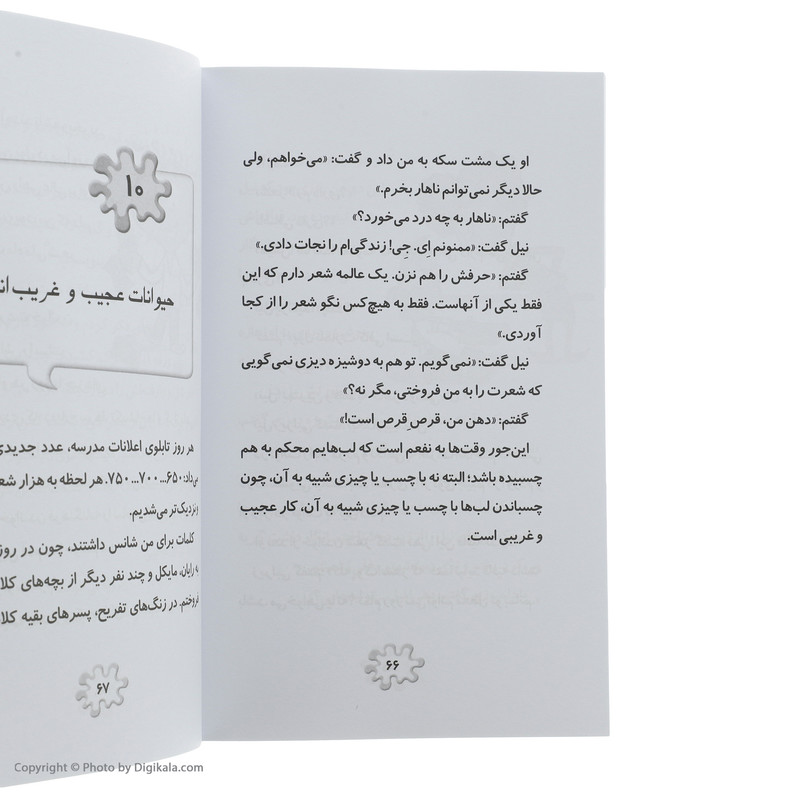 او یک مشت سکه به من داد و گفت: «می‌خواهم، ولی
حالا دیگر نمی‌توانم ناهار بخرم.»
گفتم: «ناهار به چه درد می‌خورد؟»
نیل گفت: «ممنونم اِی. جِی! زندگی‌ام را نجات دادی.»
گفتم: «حرفش را هم نزن. یک عالمه شعر دارم که این
فقط یکی از آنهاست. فقط به هیچ‌کس نگو شعر را از کجا
آوردی.»
نیل گفت: «نمی‌گویم. تو هم به دوشیزه دیزی نمی‌گویی
که شعرت را به من فروختی، مگر نه؟»
گفتم: «دهن من، قرصِ قرص است!»
این‌جور وقت‌ها به نفعم است که لب‌هایم محکم به هم
چسبیده باشد؛ البته نه با چسب یا چیزی شبیه به آن، چون
چسباندن لب‌ها با چسب یا چیزی شبیه به آن، کار عجیب
و غریبی است.
۶۶
۱۰
حیوانات عجیب و غریب
هر روز تابلوی اعلانات مدرسه، عدد جدیدی
می‌داد: ۶۵۰... ۷۰۰... ۷۵۰. هر لحظه به هزار
و نزدیک‌تر می‌شدیم.
کلمات برای من شانس داشتند، چون در روز
به رایان، مایکل و چند نفر دیگر از بچه‌های
فروختم. در زنگ‌های تفریح، پسرهای بقیه
۶۷
Copyright © Photo by Digikala.com